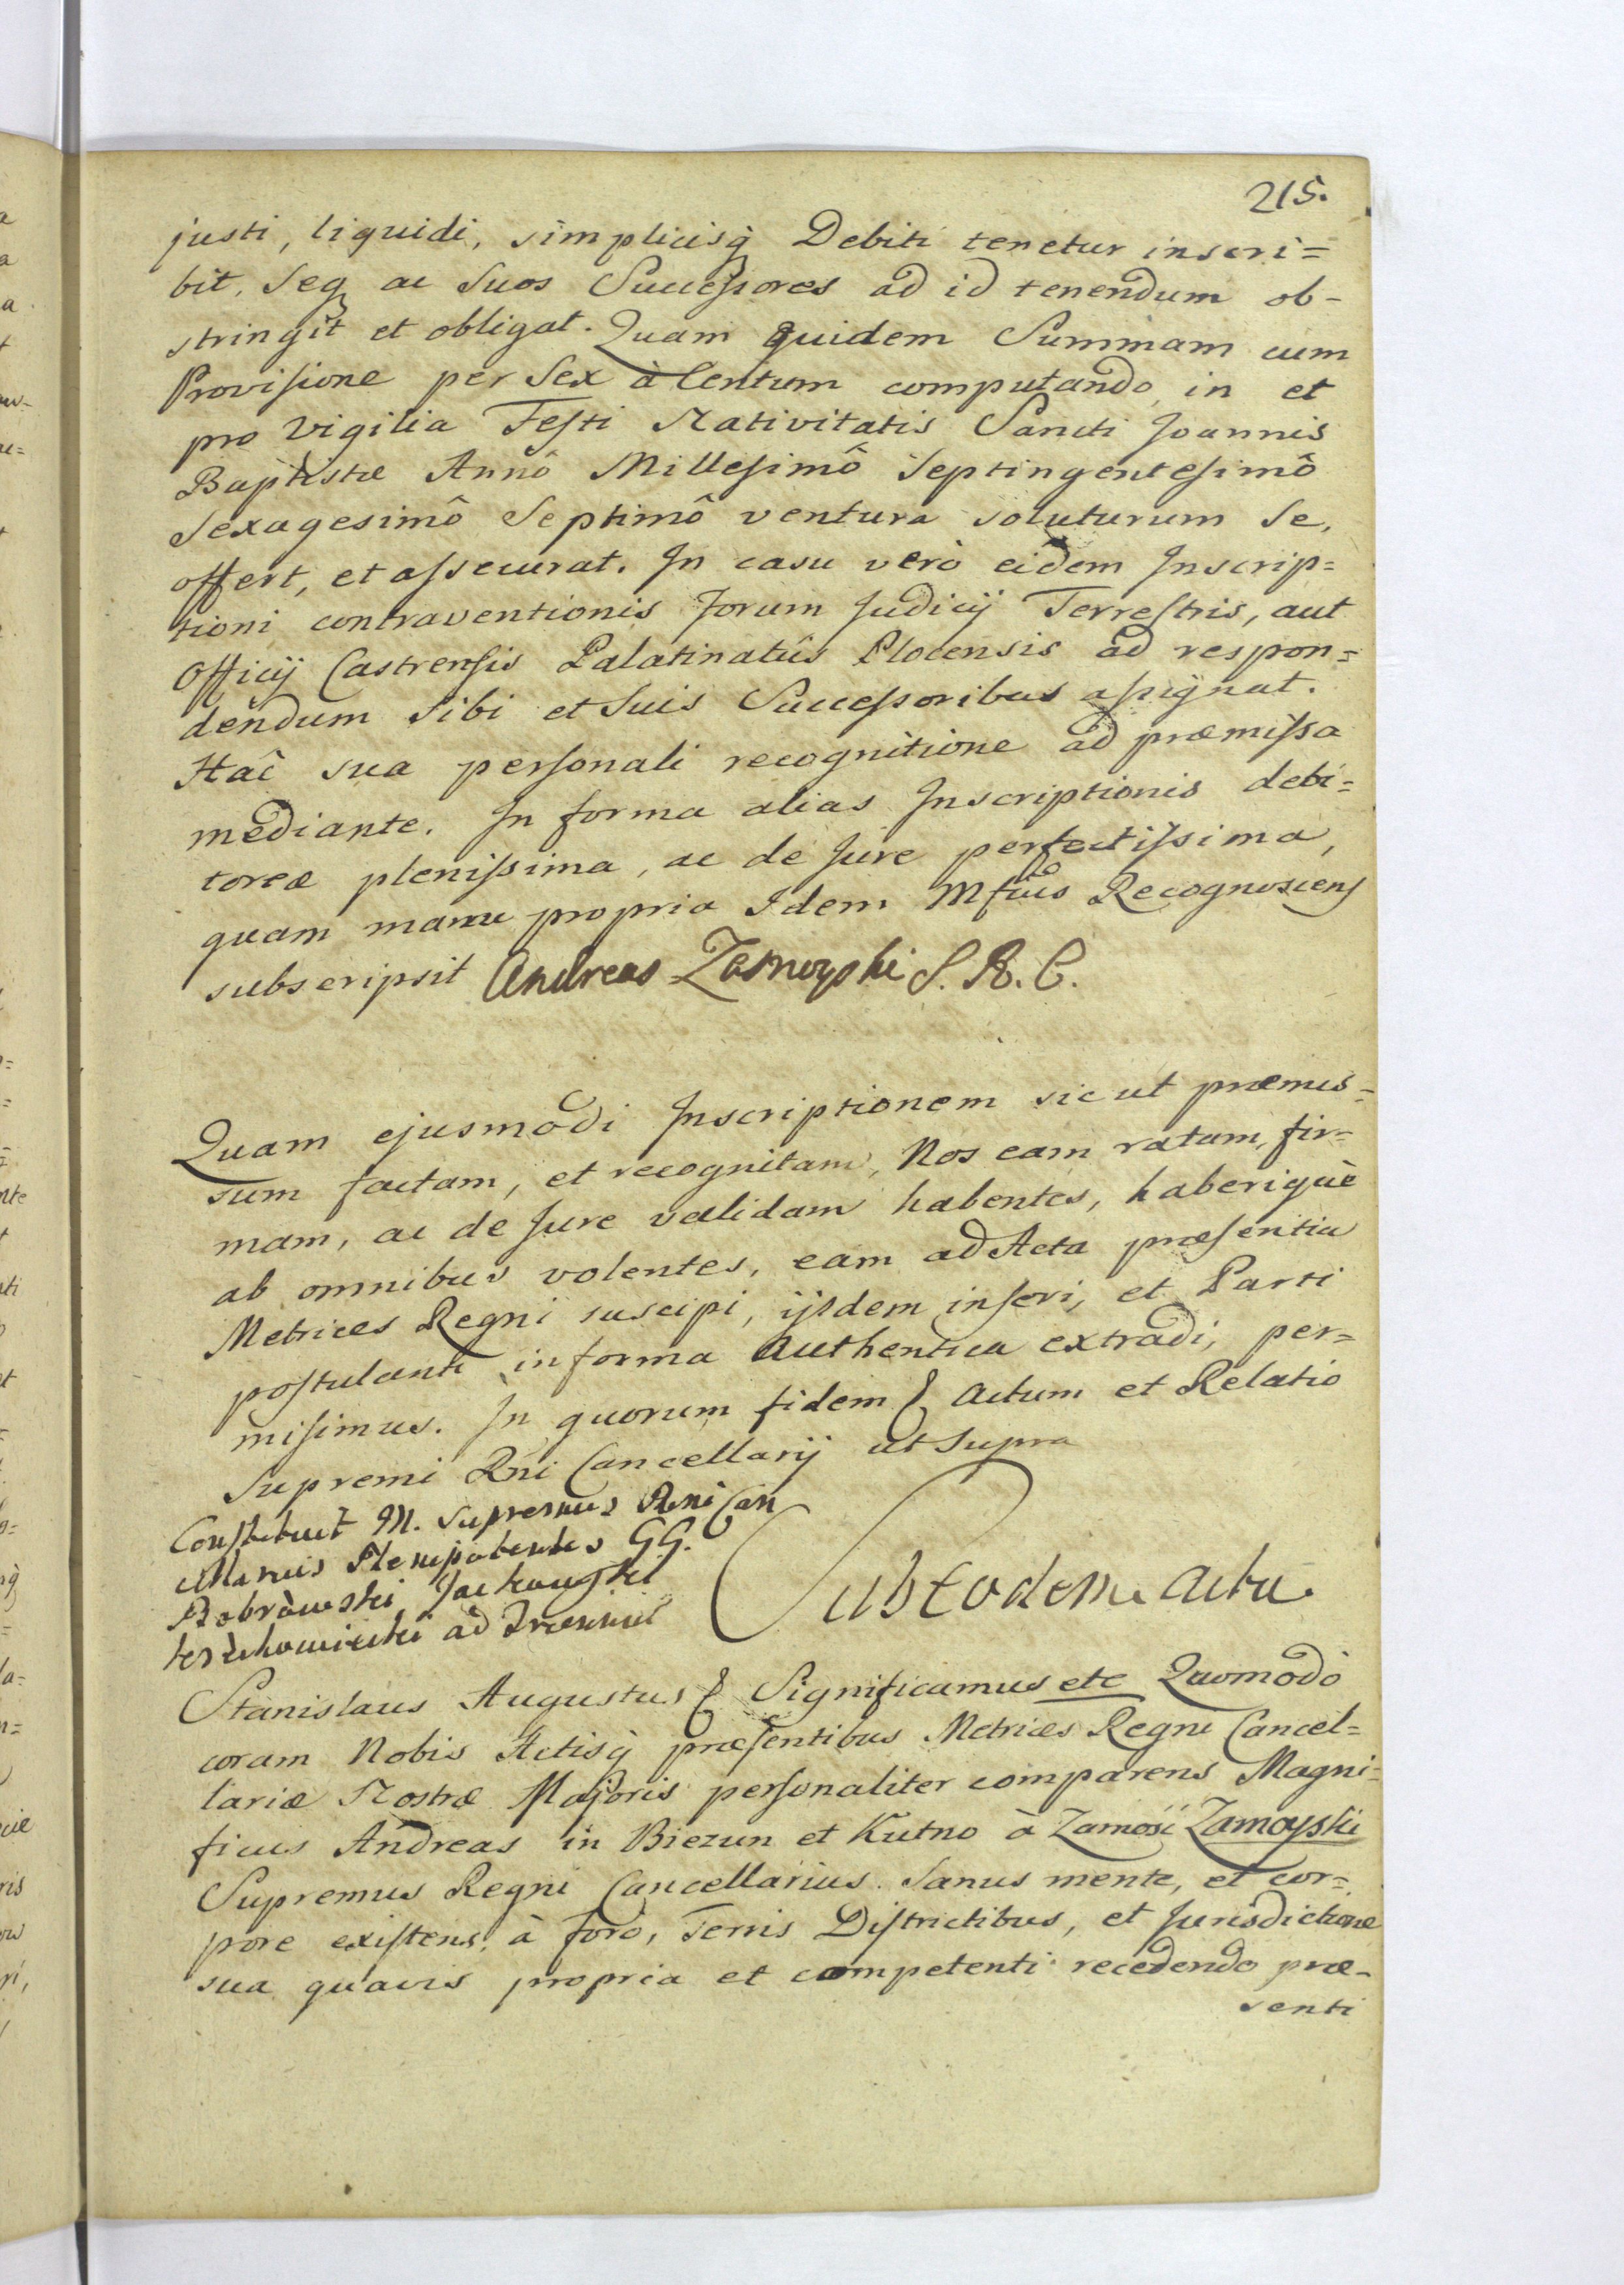 215.
justi, liquidi, simplicisq̀ Debiti tenetur inscri=
bit, Seq ac Suos Successores ad id tenendum ob-
stringit et obligat. Quam quidem Summam cum
Provisione per Sex à Centum computando, in et
pro Vigilia Festi Nativitatis Sancti Joannis
Baptistæ Annô Millesimô Septingentesimô
Sexagesimô Septimô ventura soluturum se,
offert, et assecurat. In casu verò eidem Inscrip=
tioni contraventionis Forum Judicij Terrestris, aut
Officij Castrensis Palatinatûs Plocensis ad respon=
dendum sibi et Suis Successoribus assignat.
Hac sua personali recognitione ad præmissa
mediante. In forma alias Inscriptionis debi=
toreæ plenissima, ac de Jure perfectissima,
quam manu propria Idem Mfcus Recognoscens
subscripsit Andreas Zamoyski S. R. C.
Quam ejusmodi Inscriptionem sic ut præmis=
sum factam, et recognitam, Nos eam ratam, fir=
mam, ac de Jure validam habentes, haberiquè
ab omnibus volentes, eam ad Acta præsentia
Metrices Regni suscipi, ijsdem inseri, et Parti
postulanti in forma authentica extradi, per=
misimus. In quorum fidem & Actum et Relatio
Supremi Rni Cancellarij ut supra
Constituit M. Supremus Rni Can
cellarius Plenipotentes GG.
Bobrowski
ad Trienniu
Sub Eodem Actu.
Stanislaus Augustus & Significamus etc Quomodò
coram Nobis Actisq̀ præsentibus Metrices Regni Cancel=
lariæ Nostræ Majoris personaliter comparens Magni=
ficus Andreas in Biezun et Kutno à Zamosć Zamoyski
Supremus Regni Cancellarius. Sanus mente, et cor=
pore existens, à foro, Terris Districtibus, et Jurisdictione
sua quavis propria et competenti recedendo præ-
senti